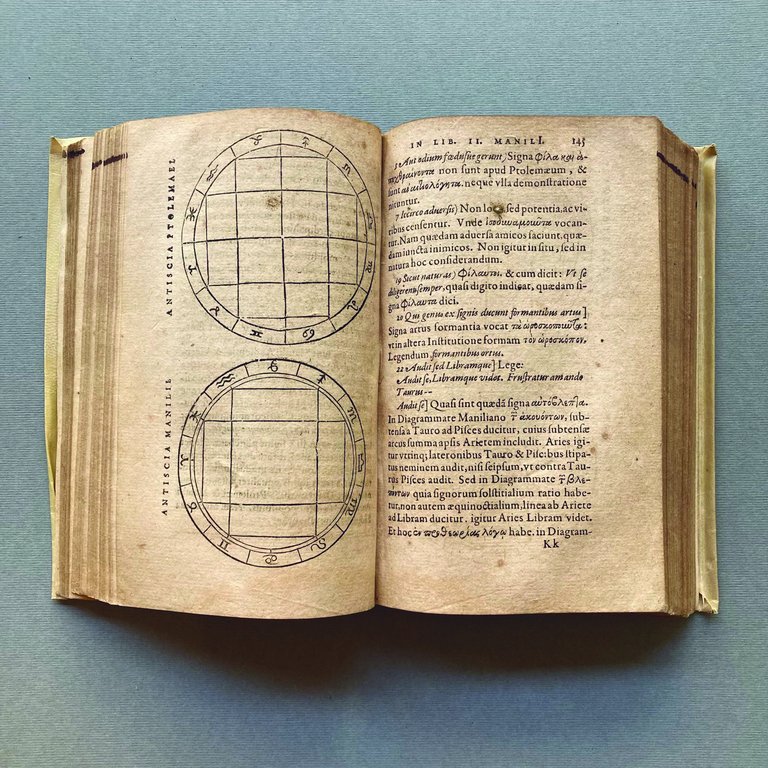 ANTISCIA PTOLEMAEI
ANTISCIA MANILII
IN LIB. II. MANILI. 145
5 Aut odium fœdusue gerunt) Signa φίλα και
non sunt apud Ptolemæum, &
sunt neque vlla demonstratione
nituntur.
7 Iccirco aduersis) Non loco sed potentia, ac vi-
ribus censentur. Vnde ἰσοδυναμοῦντα vocan-
tur. Nam quædam aduersa amicos faciunt, quæ-
dam iuncta inimicos. Non igitur in situ, sed in
natura hoc considerandum.
19 Sicut naturas) φίλαυτα. & cum dicit: Vt se
diligeret semper, quasi digito indicat, quædam si-
gna φίλαυτα dici.
20 Qui genus ex signis ducunt formantibus artus]
Signa artus formantia vocat τὰ ὡροσκοποῦντα:
vt in altera Institutione formam τὸν ὡροσκόπον.
Legendum formantibus ortus.
22 Audit sed Libramque] Lege:
Audit se, Libramque videt. Frustratur amando
Taurus--
Audit se] Quasi sint quædã signa
In Diagrammate Maniliano ἀκουόντων, sub-
tensa a Tauro ad Pisces ducitur, cuius subtensæ
arcus summa apsis Arietem includit. Aries igi
tur vtrinq; lateronibus Tauro & Piscibus stipa-
tus neminem audit, nisi seipsum, vt contra Tau-
rus Pisces audit. Sed in Diagrammate βλε-
πόντων quia signorum solstitialium ratio habe-
tur, non autem æquinoctialium, linea ab Ariete
ad Libram ducitur. igitur Aries Libram videt.
Et hoc λόγῳ habe. in Diagram-
Kk